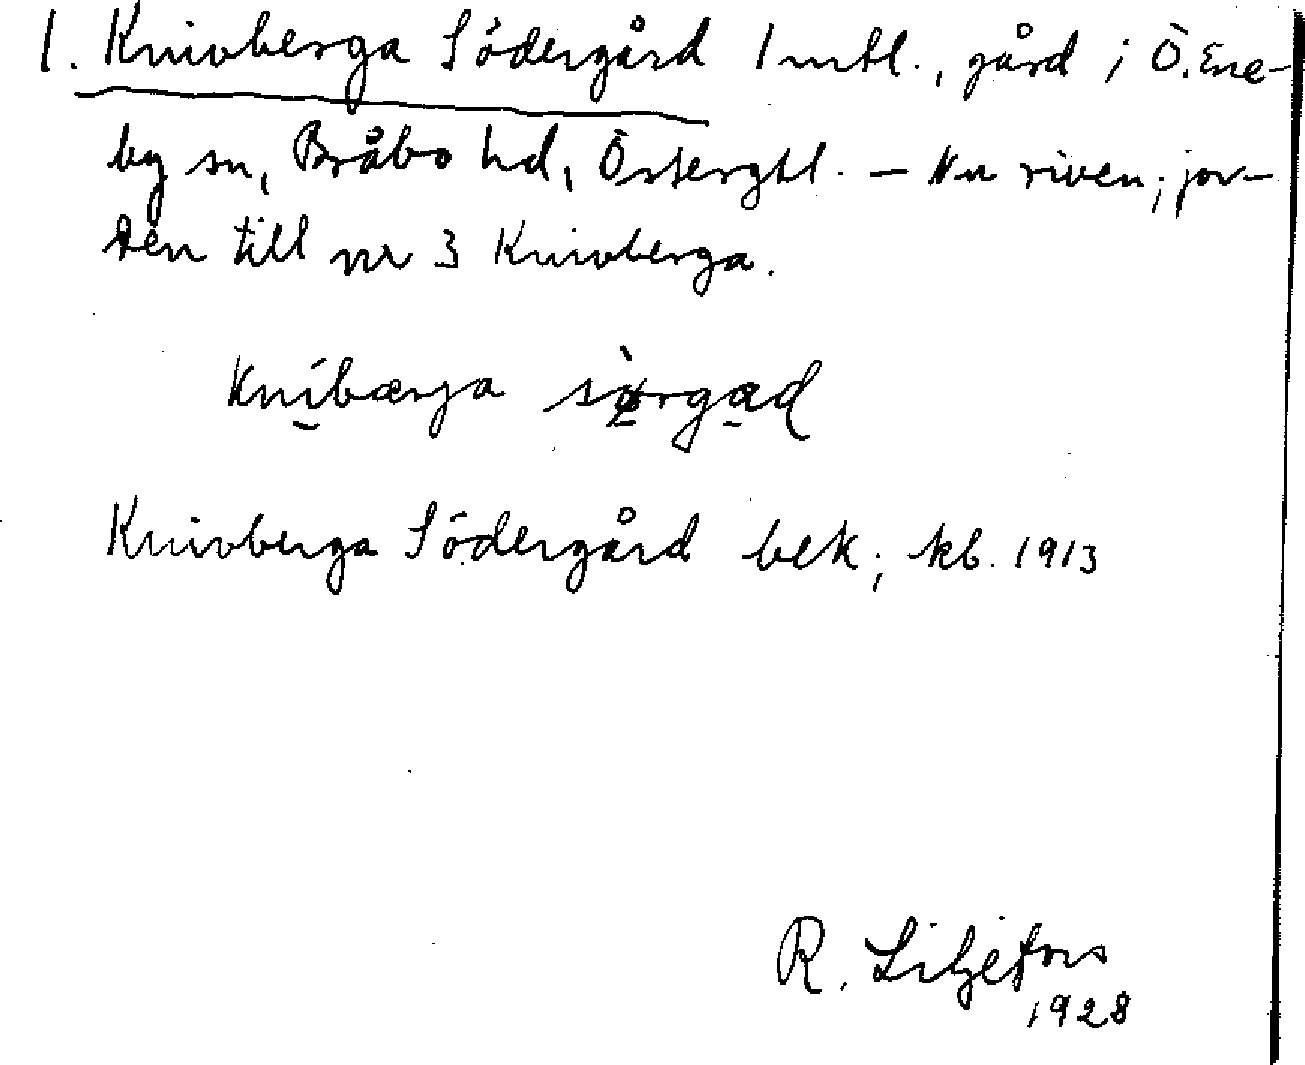 1. Knivberga Södergård 1 mtl., gård i Ö. Ene-
by sn, Bråbo hd, Östergtl. – Nu riven; jor-
den till nr 3 Knivberga.
Knivberga Södergård bek; kb. 1913
R. Liljefors
1928